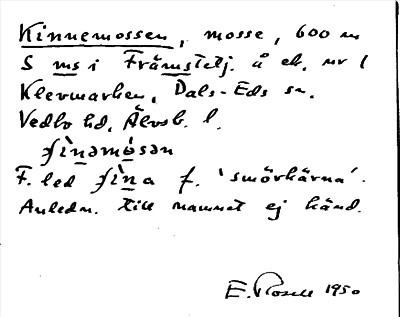 Kinnemossen, mosse, 600 m
S ms i Främstelj. å ek. nr 1
Klevmarken, Dals-Eds sn.
Vedbo hd, Älvsb. l.
ʃìnəmòsən
F. led ʃìna f. 'smörkärna'.
Anledn. till namnet ej känd.
E. Rosell 1950